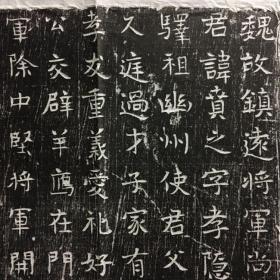 魏故鎮遠將軍尚
君諱賁之字孝隱
驛祖幽州使君父
久庭過才子家有
孝友重義愛礼好
公交辟羊鴈在門
軍除中堅將軍開